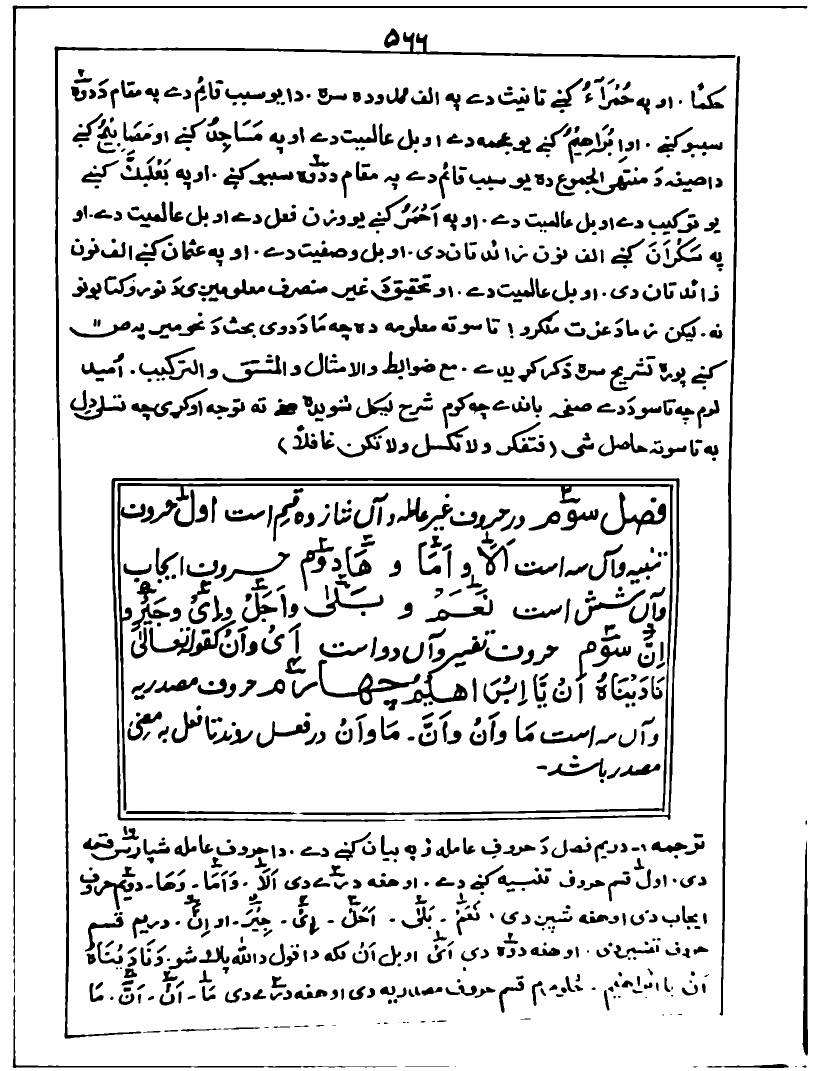 ۵۶۶
حکمًا . او په حُمَرَآءُ کښے تانیث دے په الف ممدوده سره . دا یو سبب قائم دے په مقام د دوۀ
سببو کښے . او اِبْرَاهِیْمُ کښے یو عجمه دے او بل عالمیت دے او په مَسَاجِدُ کښے او مَصَابِیْحُ کښے
داصیغه دَ منتهی الجموع ده یو سبب قائم دے په مقام د دوۀ سببو کښے . او په بَعْلَبَكَّ کښے
یو ترکیب دے او بل عالمیت دے . او په اَحْمَرُ کښے یو وزن فعل دے او بل عالمیت دے . او
په سَکْرَانَ کښے الف نون زائد تان دی . او بل وصفیت دے . او په عثمان کښے الف نون
زائد تان دی . او بل عالمیت دے . او تحقیق دَ غیر منصرف معلومیږی دَ نورو کتابونو
نه . لیکن زما دعزت ملګرو ! تاسو ته معلومه ده چه ما د دوی بحث دَ نحو میر په ص ۱۱
کښے پوره تشریح سره ذکر کړیدے . مع ضوابط والامثال و المشق و الترکیب . اُمید
لرم چه تاسو دَدے صفحے باندے چه کوم شرح لیکل شویده هغے ته توجه اوکړی چه تسلی دل
به تاسو ته حاصل شی (فتفکر ولا تکسل ولا تکن غافلاً)
فصل سوم در حروف غیر عامله و آں شانزده قسم است اول حروف
تنبیه و آں سه است اَلَا و اَمَا و هَا دوم حروف ایجاب
و آں شش است نَعَمْ و بَلٰی و اَجَلْ و اِیْ و جَیْرِ و
اِنَّ سوم حروف تفسیر و آں دو است اَیْ و اَنْ کقوله تعالٰی
نَادَیْنَاهُ اَنْ یَّا اِبْرَاهِیْمُ چهارم حروف مصدریه
و آں سه است مَا و اَنْ و اَنَّ ۔ مَا و اَنْ در فعل روند تا فعل به معنی
مصدر باشد ۔
ترجمه :۔ دریم فصل دَ حروفِ عامله ؤ په بیان کښے دے . دا حروف عامله شپاړس قسمه
دی . اول قسم حروف تنبیه کښے دے . او هغه درے دی اَلَا . وَاَمَا . وَهَا . دویم حروف
ایجاب دی او هغه شپږ دی ، نَعَمْ ۔ بَلٰی ۔ اَجَلْ ۔ اِیْ ۔ جَیْرِ ۔ او اِنَّ . دریم قسم
حروف تفسیر دی . او هغه دوۀ دی اَیْ او بل اَنْ لکه دا قول دالله پاک شو . وَنَادَیْنَاهُ
اَنْ یَا اِبْرَاهِیْمُ . څلورم قسم حروف مصدریه دی او هغه درے دی مَا ۔ اَنْ ۔ اَنَّ . مَا